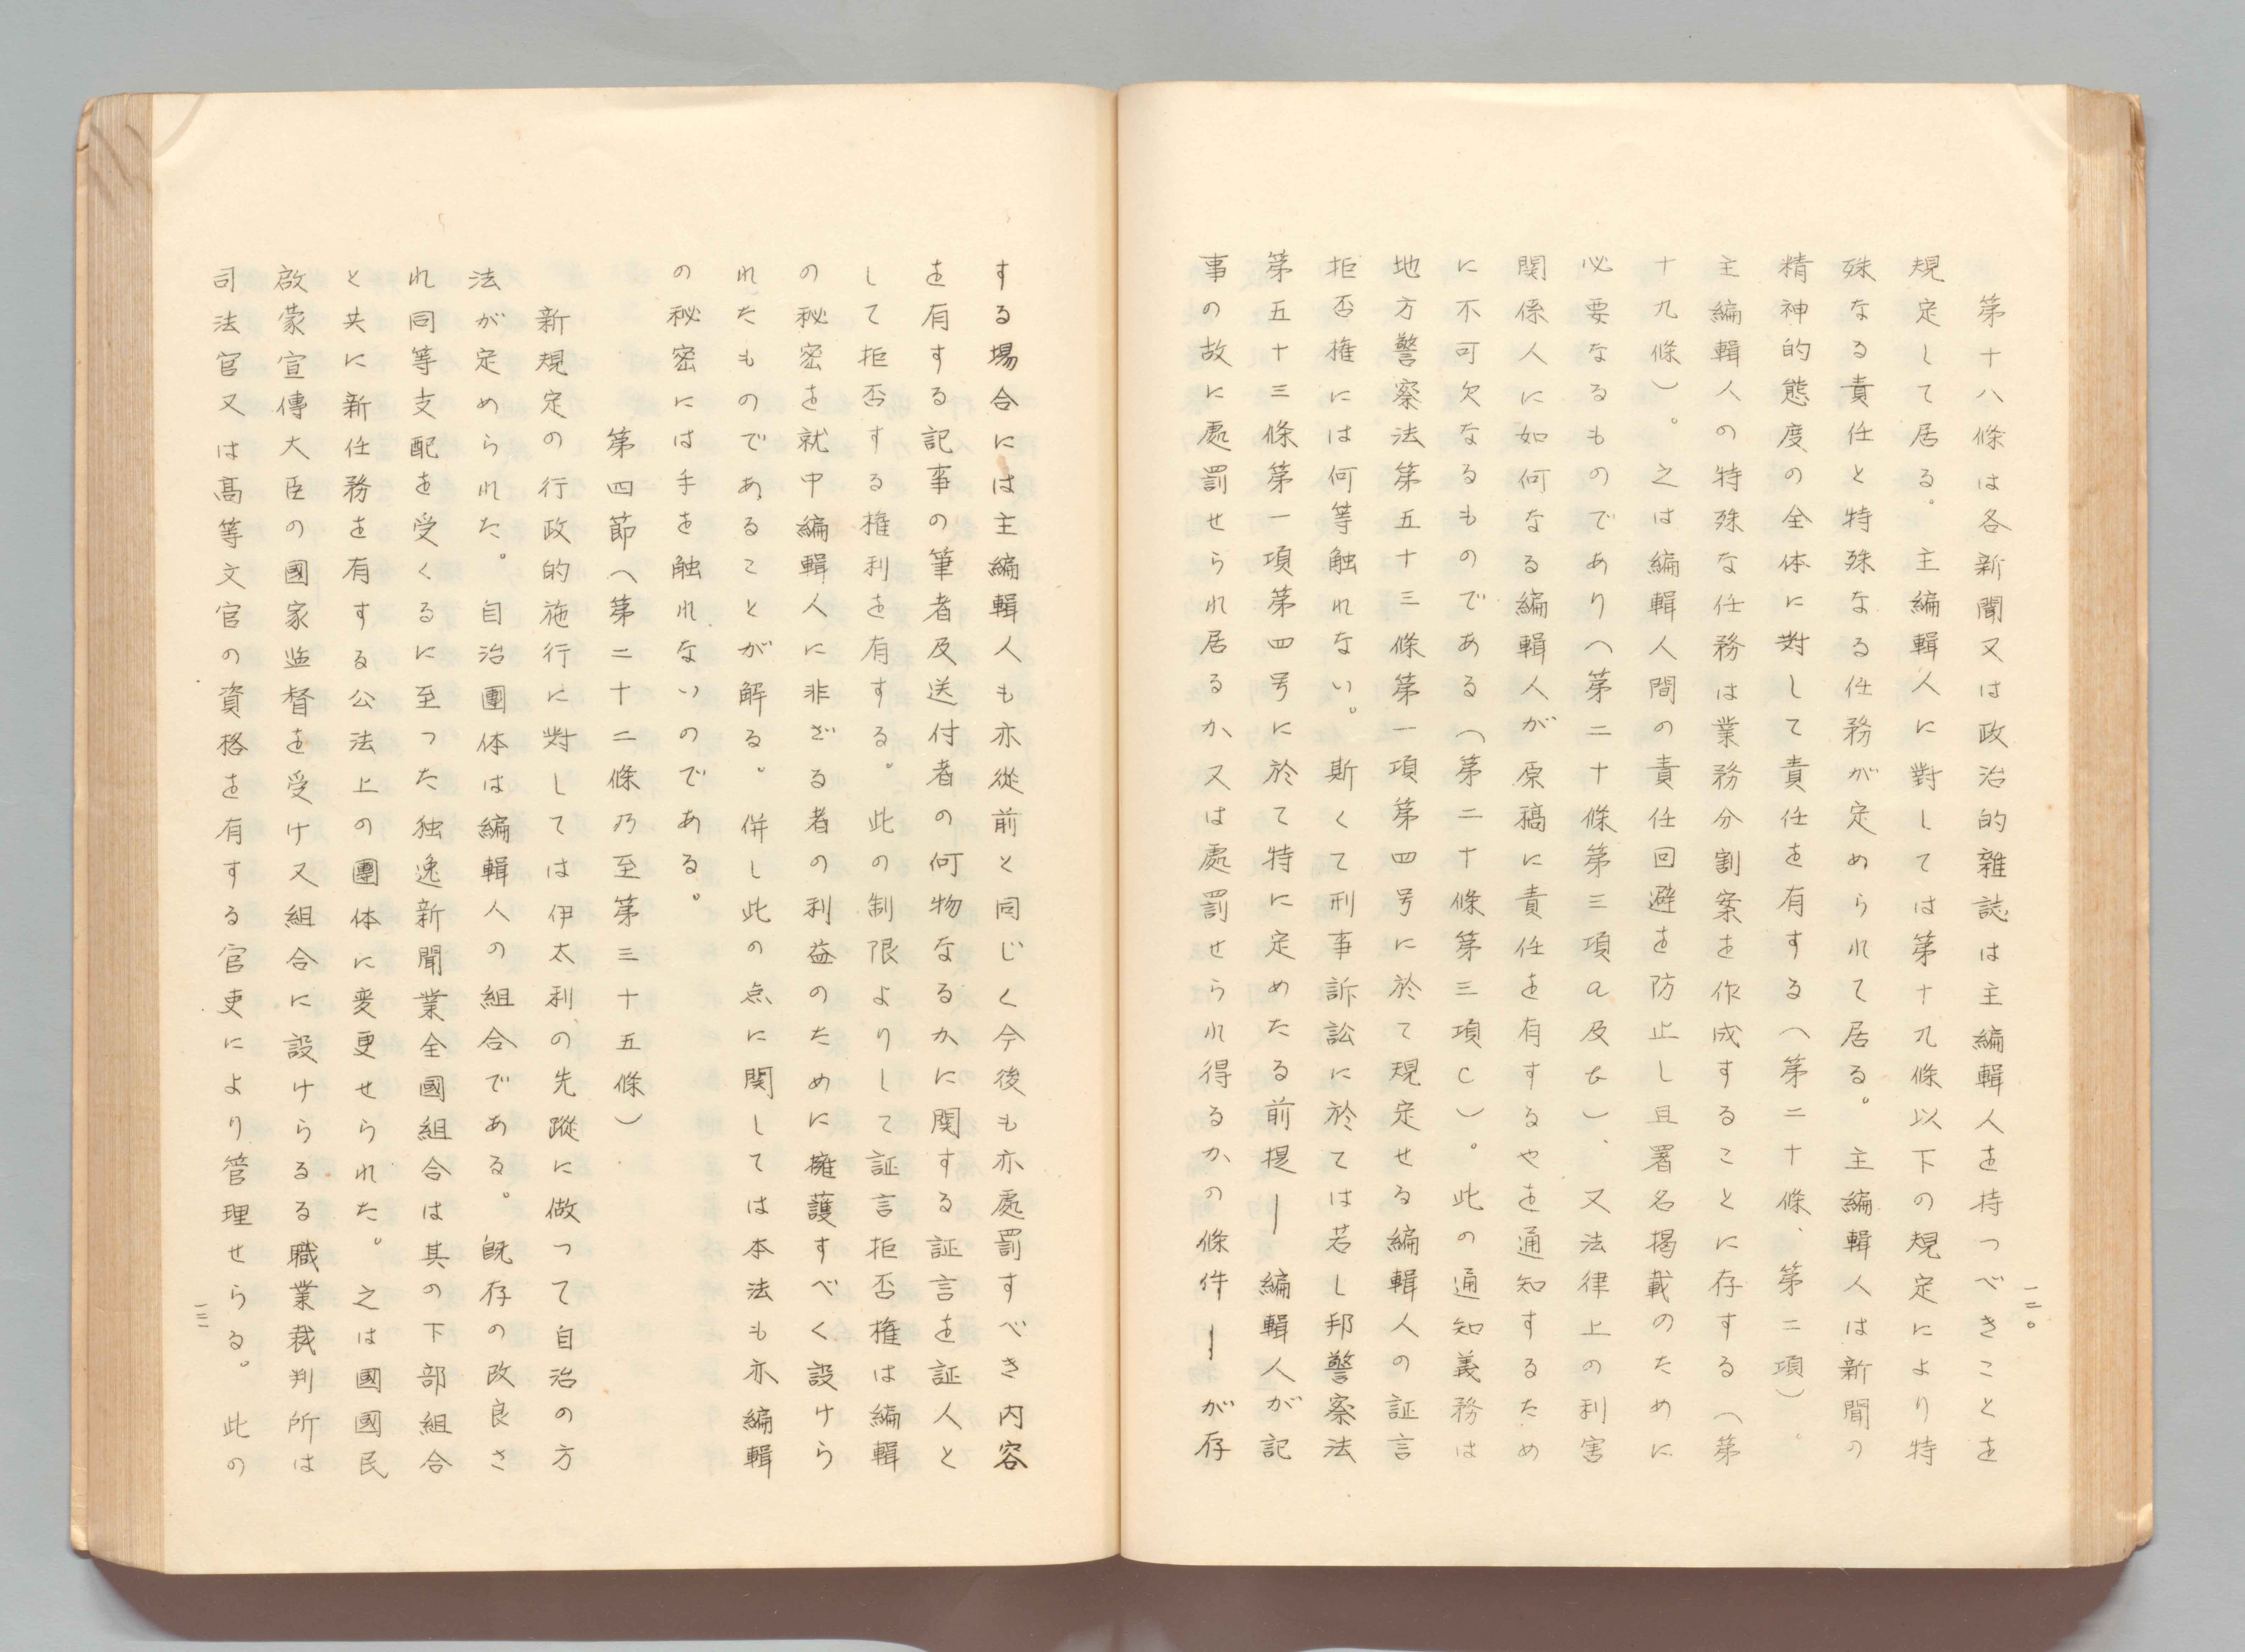 一二〇
第十八條は各新聞又は政治的雜誌は主編輯人を持つべきことを
規定して居る。主編輯人に對しては第十九條以下の規定により特
殊なる責任と特殊なる任務が定められて居る。主編輯人は新聞の
精神的態度の全体に對して責任を有する（第二十條、第二項）。
主編輯人の特殊な任務は業務分割案を作成することに存する（第
十九條）。之は編輯人間の責任回避を防止し且署名揭載のために
必要なるものであり（第二十條第三項a及b）、又法律上の利害
関係人に如何なる編輯人が原稿に責任を有するやを通知するため
に不可欠なるものである（第二十條第三項c）。此の通知義務は
地方警察法第五十三條第一項第四号に於て規定せる編輯人の証言
拒否権には何等触れない。斯くて刑事訴訟に於ては若し邦警察法
第五十三條第一項第四号に於て特に定めたる前提―編輯人が記
事の故に處罰せられ居るか、又は處罰せられ得るか、の條件―が存
する場合には主編輯人も亦從前と同じく今後も亦處罰すべき内容
を有する記事の筆者及送付者の何物なるかに関する証言を証人と
して拒否する権利を有する。此の制限よりして証言拒否権は編輯
の秘密を就中編輯人に非ざる者の利益のために擁護すべく設けら
れたものであることが解る。併し此の点に関しては本法も亦編輯
の秘密には手を触れないのである。
第四節（第二十二條乃至第三十五條）
新規定の行政的施行に對しては伊太利の先蹤に倣つて自治の方
法が定められた。自治團体は編輯人の組合である。既存の改良さ
れ同等支配を受くるに至つた独逸新聞業全國組合は其の下部組合
と共に新任務を有する公法上の團体に変更せられた。之は國國民
啟蒙宣傳大臣の國家監督を受け又組合に設けらるる職業裁判所は
司法官又は高等文官の資格を有する官吏により管理せらる。此の
一二一